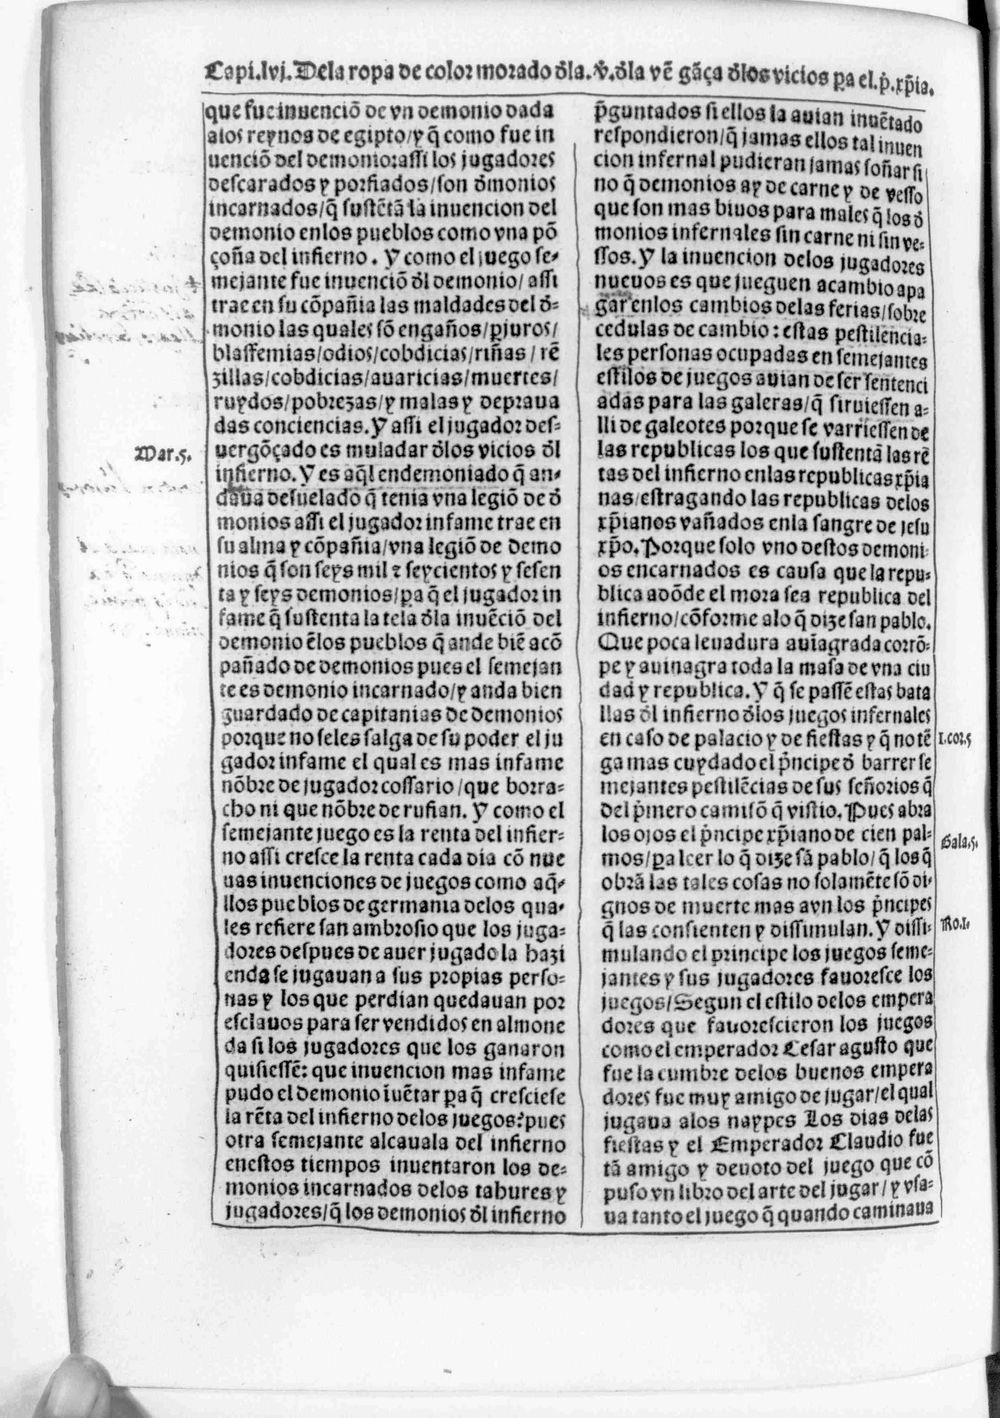 Capi.lvj. Dela ropa de color morado d̄la. v̄. d̄la vē gāça d̄los vicios ꝑa el.p̄.xp̄ia.
que fue inuenciō de vn demonio dada
alos reynos de egipto/y q̄ como fue in
uenciō del demonio: assi los jugadores
descarados y porfiados/son d̄monios
incarnados/q̄ sustētā la inuencion del
demonio enlos pueblos como vna pō
çoña del infierno. Y como el juego se-
mejante fue inuenciō d̄l demonio/assi
trae en su cōpañia las maldades del d̄-
monio las quales sō engaños/ꝑjuros/
blassemias/odios/cobdicias/riñas/rē
zillas/cobdicias/auaricias/muertes/
ruydos/pobrezas/y malas y depraua
das conciencias. Y assi el jugador des-
uergōçado es muladar d̄los vicios d̄l
infierno. Y es aq̄l endemoniado q̄ an-
daua desuelado q̄ tenia vna legiō de d̄
monios assi el jugador infame trae en
su alma y cōpañia/vna legiō de demo
nios q̄ son seys mil ⁊ seycientos y sesen
ta y seys demonios/ꝑa q̄ el jugador in
fame q̄ sustenta la tela d̄la inuēciō del
demonio ēlos pueblos q̄ ande biē acō
pañado de demonios pues el semejan
te es demonio incarnado/y anda bien
guardado de capitanias de demonios
porque no seles salga de su poder el ju
gador infame el qual es mas infame
nōbre de jugador cossario/que borra-
cho ni que nōbre de rufian. Y como el
semejante juego es la renta del infier-
no assi cresce la renta cada dia cō nue
uas inuenciones de juegos como aq̄-
llos pueblos de germania delos qua-
les refiere san ambrosio que los juga-
dores despues de auer jugado la hazi
enda se jugauan a sus propias perso-
nas y los que perdian quedauan por
esclauos para ser vendidos en almone
da si los jugadores que los ganaron
quisiessē: que inuencion mas infame
pudo el demonio īuētar ꝑa q̄ cresciese
la rēta del infierno delos juegos? pues
otra semejante alcauala del infierno
enestos tiempos inuentaron los de-
monios incarnados delos tahures y
jugadores/q̄ los demonios d̄l infierno
Mar.5.
p̄guntados si ellos la auian inuētado
respondieron/q̄ jamas ellos tal inuen
cion infernal pudieran jamas soñar si
no q̄ demonios ay de carne y de vesso
que son mas biuos para males q̄ los d̄
monios infernales sin carne ni sin ve-
ssos. Y la inuencion delos jugadores
nueuos es que jueguen a cambio apa
gar enlos cambios delas ferias/sobre
cedulas de cambio: estas pestilencia-
les personas ocupadas en semejantes
estilos de juegos auian de ser sentenci
adas para las galeras/q̄ siruiessen a-
lli de galeotes porque se varriessen de
las republicas los que sustentā las rē
tas del infierno enlas republicas xp̄ia
nas/estragando las republicas delos
xp̄ianos vañados enla sangre de jesu
xp̄o. Porque solo vno destos demoni-
os encarnados es causa que la repu-
blica adōde el mora sea republica del
infierno/cōforme alo q̄ dize san pablo.
Que poca leuadura auiagrada corrō-
pe y auinagra toda la masa de vna ciu
dad y republica. Y q̄ se passē estas bata
llas d̄l infierno d̄los juegos infernales
en caso de palacio y de fiestas y q̄ no tē
ga mas cuydado el p̄ncipe d̄ barrer se
mejantes pestilēcias de sus señorios q̄
del p̄mero camisō q̄ vistio. Pues abra
los ojos el p̄ncipe xp̄iano de cien pal-
mos/ꝑa leer lo q̄ dize sā pablo/q̄ los q̄
obrā las tales cosas no solamēte sō di-
gnos de muerte mas avn los p̄ncipes
q̄ las consienten y dissimulan. Y dissi-
mulando el principe los juegos seme-
jantes y sus jugadores fauoresce los
juegos/Segun el estilo delos empera
dores que fauorescieron los juegos
como el emperador Cesar agusto que
fue la cumbre delos buenos empera
dores fue muy amigo de jugar/el qual
jugaua alos naypes Los dias delas
fiestas y el Emperador Claudio fue
tā amigo y deuoto del juego que cō
puso vn libro del arte del jugar/y vsa-
ua tanto el juego q̄ quando caminaua
1.cor.5
Gala.5.
Ro.1.